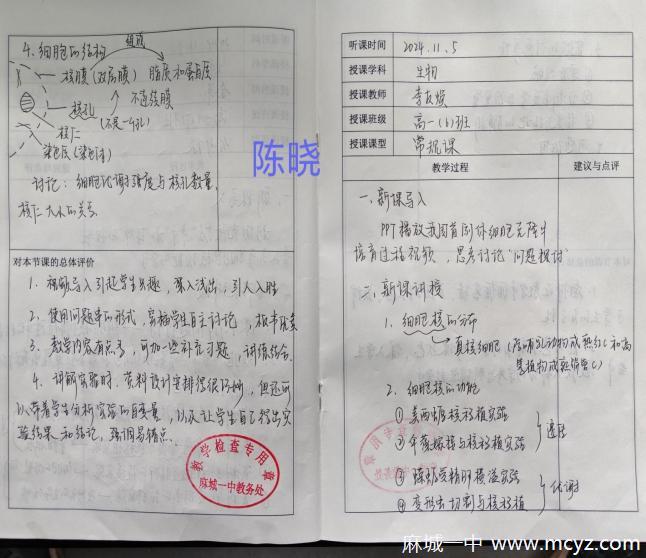 4. 细胞的结构
组成
核膜（双层膜） 脂质和蛋白质
核孔 不连续膜
（不是一个孔）
核仁
染色质（染色体）
讨论：细胞代谢强度与核孔数量，
核仁大小的关系.
陈晓
对本节课的总体评价
1. 视频导入引起学生兴趣，深入浅出，引人入胜
2. 使用问题串的形式，穿插学生自主讨论，板书
3. 教学内容有点少，可加一些补充习题，讲练结合.
4. 讲解实验时，资料设计安排得很巧妙，但还可
以带着学生分析实验的自变量，以及让学生自己得出实
验结果和结论，强调易错点.
教学检查专用章
麻城一中教务处
听课时间 2024.11.5
授课学科 生物
授课教师 李
授课班级 高一（6）班
授课课型 常规课
教学过程 建议与点评
一. 新课导入
PPT播放我国首例体细胞克隆牛
培育过程视频，思考讨论“问题探讨”
二. 新课讲授
1. 细胞核的分布
真核细胞（除哺乳动物成熟红C和高
等植物成熟筛管C）
2. 细胞核的功能
① 美西螈核移植实验
② 伞藻嫁接与核移植实验
遗传
③ 蝾螈受精卵横缢实验
④ 变形虫切割与核移植
代谢
麻城一中 www.mcyz.com